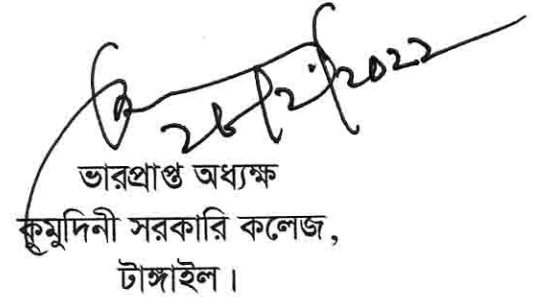 28/2/2022
ভারপ্রাপ্ত অধ্যক্ষ
কুমুদিনী সরকারি কলেজ,
টাঙ্গাইল।